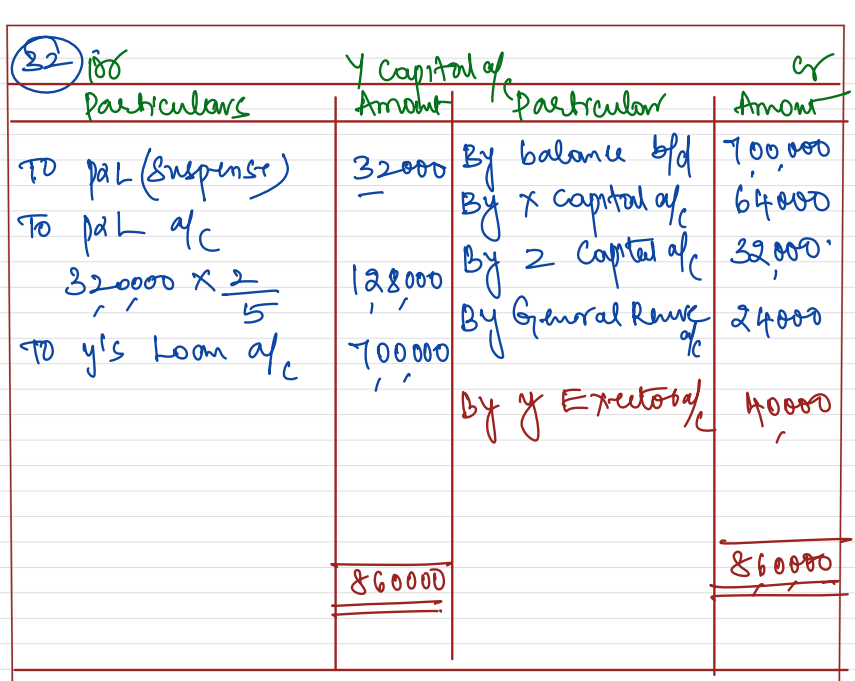 32 Dr Y Capital a/c Cr
Particulars Amount Particular Amount
To P&L (Suspense) 32000 By balance b/d 700,000
To P&L a/c By X Capital a/c 64000
320000 × 2/5 128000 By Z Capital a/c 32,000
To Y's Loan a/c 700000 By General a/c 24000
By Y a/c 40000
860000 860000